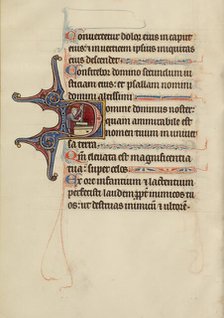 Convertetur dolor eius in caput
eius: et in verticem ipsius iniquitas
eius descendet.
Confitebor domino secundum iu
sticiam eius: et psallam nomini
domini altissimi.
Domine dominus noster
quam ammirabile est
nomen tuum in univer
sa terra.
Qm̄ elevata est magnificentia
tua: super celos.
Ex ore infantium et lactentium
perfecisti laudem ppr̄ inimicos
tuos: ut destruas inimicū et ultorē.